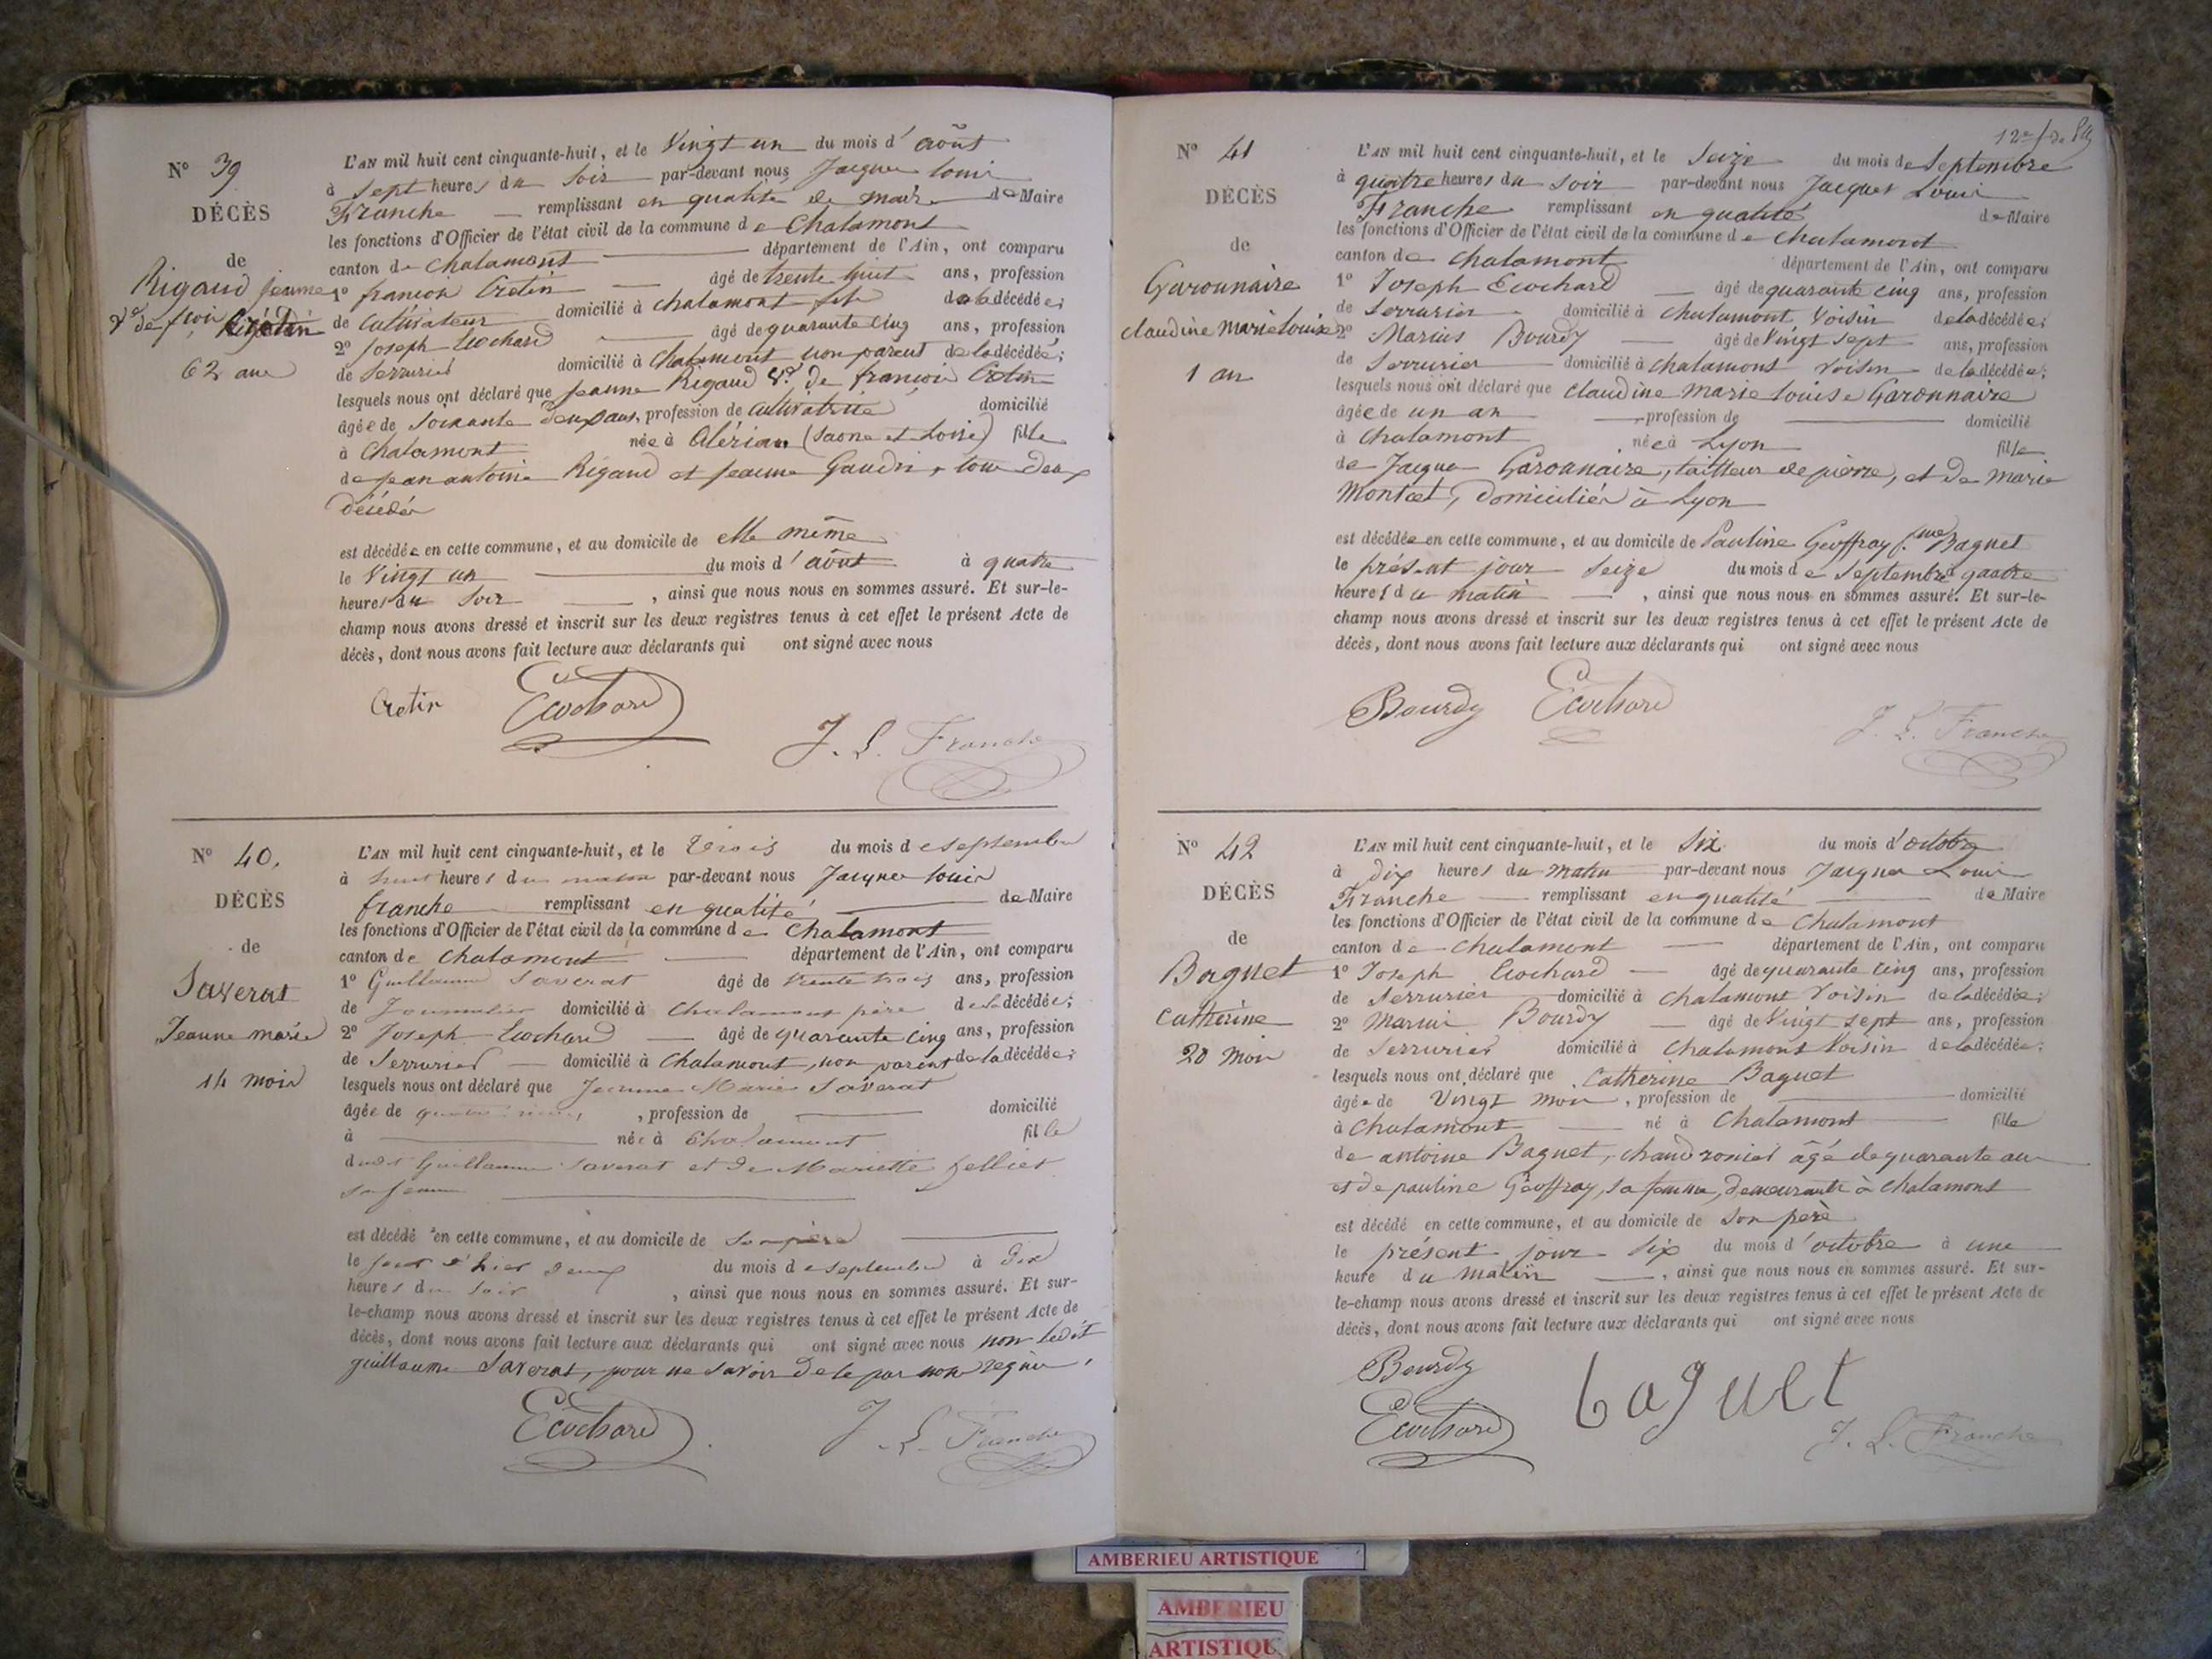 N° 39
DÉCÈS
de
Rigaud Jeanne
Ve de fçois Crétin
62 ans
L'AN mil huit cent cinquante-huit, et le Vingt un du mois d'août
à sept heures du soir par-devant nous Jacques Louis
Franche remplissant en qualité de maire de Maire
les fonctions d'Officier de l'état civil de la commune de Chalamont
canton de Chalamont département de l'Ain, ont comparu
1° françois Cretin âgé de trente huit ans, profession
de cultivateur domicilié à Chalamont fils de la décédée;
2° Joseph Ecochard âgé de quarante cinq ans, profession
de Serrurier domicilié à Chalamont non parent de la décédée;
lesquels nous ont déclaré que Jeanne Rigaud Ve de françois Cretin
âgée de soixante deux ans, profession de cultivatrice domicilié
à Chalamont née à (Saone et Loire) fille
de Jean antoine Rigaud et Jeanne Gaudri, tous deux
décédés
est décédée en cette commune, et au domicile de elle même
le Vingt un du mois d'août à quatre
heures du Soir , ainsi que nous nous en sommes assuré. Et sur-le-
champ nous avons dressé et inscrit sur les deux registres tenus à cet effet le présent Acte de
décès, dont nous avons fait lecture aux déclarants qui ont signé avec nous
Cretin Ecochard
J. L. Franche
N° 40.
DÉCÈS
de
Saverat
Jeanne marie
14 mois
L'AN mil huit cent cinquante-huit, et le trois du mois de septembre
à huit heures du matin par-devant nous Jacques Louis
franche remplissant en qualité de Maire
les fonctions d'Officier de l'état civil de la commune de Chalamont
canton de Chalamont département de l'Ain, ont comparu
1° Guillaume Saverat âgé de trente trois ans, profession
de Journalier domicilié à Chalamont père de la décédée;
2° Joseph Ecochard âgé de quarante cinq ans, profession
de Serrurier domicilié à Chalamont, non parent de la décédée;
lesquels nous ont déclaré que Jeanne Marie Saverat
âgée de , profession de domicilié
à née à Chalamont fille
dudit Guillaume Saverat et de Mariette fellier
sa femme
est décédé en cette commune, et au domicile de son père
le jour d'hier deux du mois de septembre à dix
heures du soir , ainsi que nous nous en sommes assuré. Et sur-
le-champ nous avons dressé et inscrit sur les deux registres tenus à cet effet le présent Acte de
décès, dont nous avons fait lecture aux déclarants qui ont signé avec nous non ledit
guillaume Saverat, pour ne savoir de ce par nous requis.
Ecochard J. L. Franche
12e f de Ptt
N° 41
DÉCÈS
de
Garonnaire
claudine marie louise
1 an
L'AN mil huit cent cinquante-huit, et le Seize du mois de Septembre
à quatre heures du soir par-devant nous Jacques Louis
Franche remplissant en qualité de Maire
les fonctions d'Officier de l'état civil de la commune de Chalamont
canton de Chalamont département de l'Ain, ont comparu
1° Joseph Ecochard âgé de quarante cinq ans, profession
de Serrurier domicilié à Chalamont Voisin de la décédée;
2° Marius Bourdy âgé de Vingt sept ans, profession
de Serrurier domicilié à Chalamont Voisin de la décédée;
lesquels nous ont déclaré que claudine marie louise Garonnaire
âgée de un an profession de domicilié
à Chalamont née à Lyon fille
de Jacques Garonnaire, tailleur de pierre, et de marie
Montcet, domiciliés à Lyon
est décédée en cette commune, et au domicile de Pauline Geoffray fme Baguet
le présent jour Seize du mois de Septembre à quatre
heures du matin , ainsi que nous nous en sommes assuré. Et sur-le-
champ nous avons dressé et inscrit sur les deux registres tenus à cet effet le présent Acte de
décès, dont nous avons fait lecture aux déclarants qui ont signé avec nous
Bourdy Ecochard
J. L. Franche
N° 42
DÉCÈS
de
Baguet
Catherine
20 mois
L'AN mil huit cent cinquante-huit, et le Six du mois d'octobre
à dix heures du matin par-devant nous Jacques Louis
Franche remplissant en qualité de Maire
les fonctions d'Officier de l'état civil de la commune de Chalamont
canton de Chalamont département de l'Ain, ont comparu
1° Joseph Ecochard âgé de quarante cinq ans, profession
de Serrurier domicilié à Chalamont Voisin de la décédée;
2° Marius Bourdy âgé de Vingt sept ans, profession
de Serrurier domicilié à Chalamont Voisin de la décédée;
lesquels nous ont déclaré que Catherine Baguet
âgée de Vingt mois, profession de domicilié
à Chalamont né à Chalamont fille
de antoine Baguet, chaudronier âgé de quarante ans
et de pauline Geoffray, sa femme, demeurants à Chalamont
est décédé en cette commune, et au domicile de son père
le présent jour Six du mois d'octobre à une
heure du matin , ainsi que nous nous en sommes assuré. Et sur-
le-champ nous avons dressé et inscrit sur les deux registres tenus à cet effet le présent Acte de
décès, dont nous avons fait lecture aux déclarants qui ont signé avec nous
Bourdy
Ecochard baguet
J. L. Franche
AMBERIEU ARTISTIQUE
AMBERIEU
ARTISTIQU